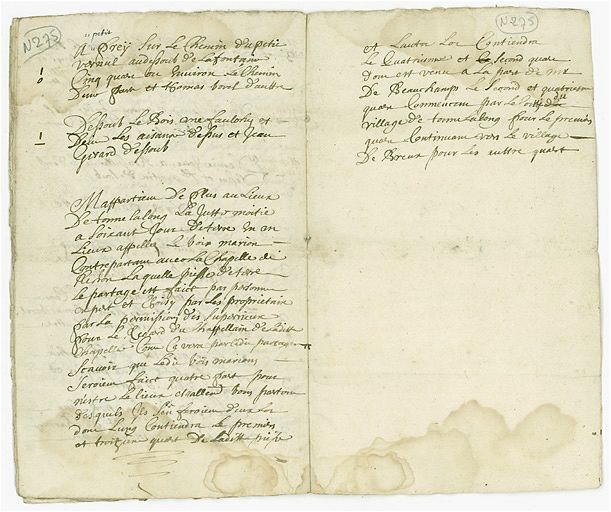 N275
petit
A Preÿ Sur Le Chemin du petit
verneul audesout de La fontaine
Cinq quars ou Environ Le Chemin
Dune part et thomas borel d'autre
Dessout Le Bois
Girard dessout
Mappartien De plus au Lieux
De tonne La long La Juste moitie
a Soixant Jour de terre En un
Lieux appellez Le bois marion
Contrepartant avec La Chapelle de
Laquelle piesse de terre
Le partage est faict par personne
Expert et Choisy par Les proprietair
par La permission des Superieur
pour Le Regard du Chappellain de Ladite
Chapelle Comme Ce vera par Ledu partage
Scavoir que Ledit bois marions
Seroient faict quatre part pour
des quels
dont Lung Contiendra Le premier
et troisiem quart De Ladite piesse
N275
et Lautre Lot Contiendra
Le quatriesme et Le Second quart
dont est venu a La part de mr
De Beauchamps Le Second et quatriesm
quart Commencent par Le
village de tonne La long pour Le premier
quart Continuant vers Le village
De Breux pour Les auttre quart